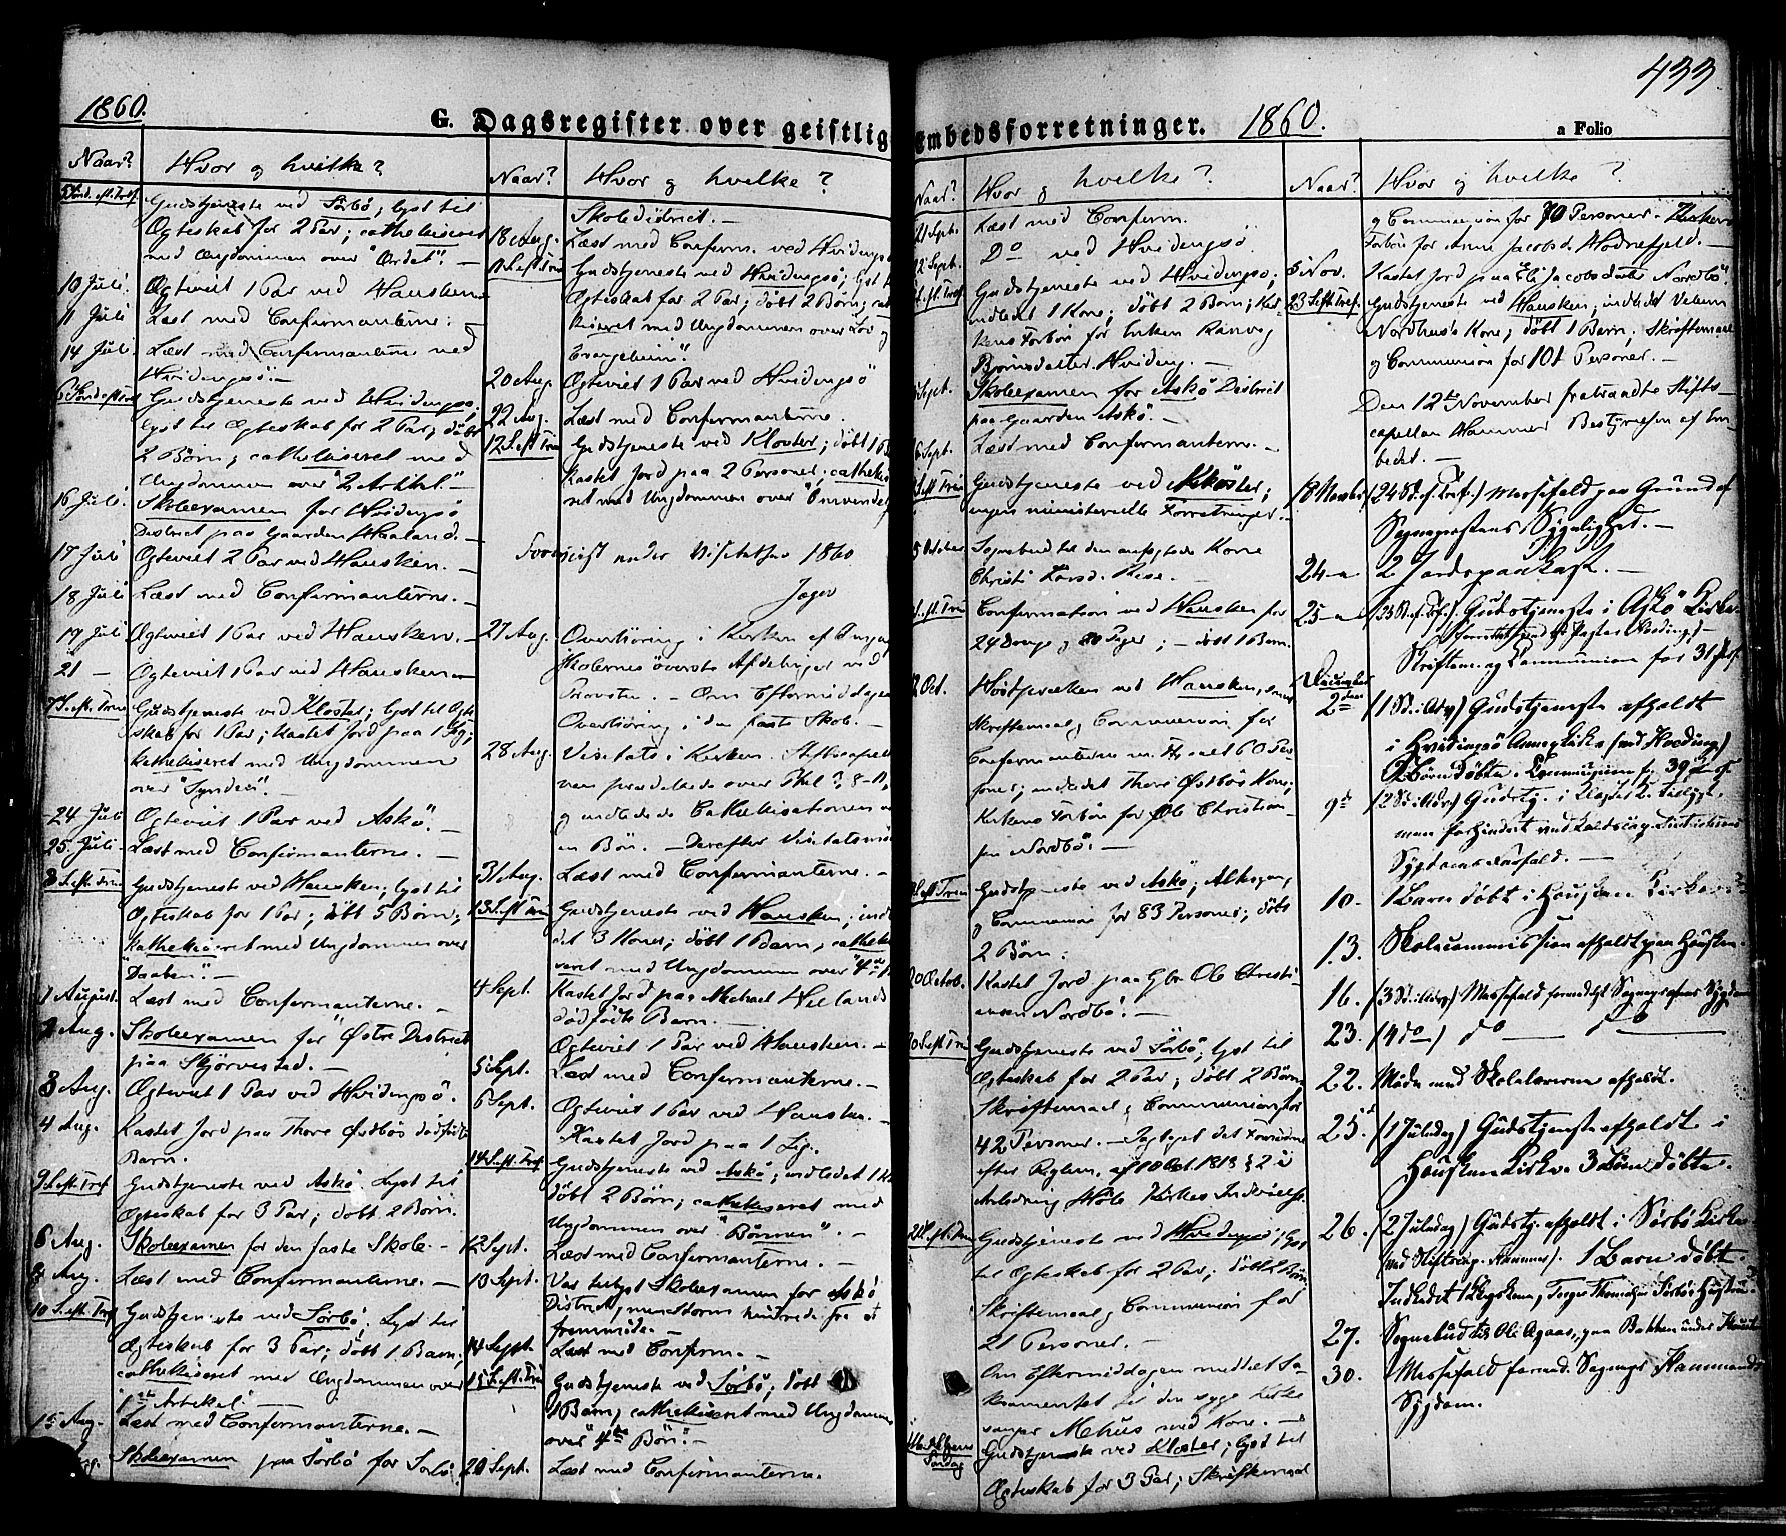 433
1860.
G. Dagsregister over geistlig
Naar?
Hvor og hvilke?
5te Sönd. eft. Tref.
Gudstjeneste ved Sörbö; lyst til
Ægteskab for 2 Par; catheciseret
med Ungdommen over "Ordet". —
10 Juli
Ægteviet 1 Par ved Hausken
11 Juli
Læst med Confirmanterne. —
14 Juli
Læst med Confirmanterne ved
Hvidingsö. —
6 Sönd. eft. Tref.
Gudstjeneste ved Hvidingsö;
lyst til Ægteskab for 2 Par; döbt
2 Börn; catheciseret med
Ungdommen over "2 Artikel". —
16 Juli
Skoleexamen for Hvidingsö
District paa Gaarden Haaland. —
17 Juli
Ægteviet 2 Par ved Hausken. —
18 Juli
Læst med Confirmanterne. —
19 Juli
Ægteviet 1 Par ved Hausken. —
21 —
Ægteviet 1 Par ved Hausken —
7 S. eft. Trin
Gudstjeneste ved Kloster; lyst til Ægte
skab for 1 Par; kastet Jord paa 1 Lig;
katheciseret med Ungdommen
over "Synden". —
24 Juli
Ægteviet 1 Par ved Askö. —
25. Juli
Læst med Confirmanterne. —
8 S. eft. Trin
Gudstjeneste ved Hausken; lyst til
Ægteskab for 1 Par; döbt 5 Börn;
katheciseret med Ungdommen over
"Daaben". —
1 August.
Læst med Confirmanterne. —
2 Aug.
Skoleexamen for Östre District
paa Skjörvestad. —
3 Aug.
Ægteviet 1 Par ved Hvidingsö.
4 Aug.
Kastet Jord paa Thore Östbös dödfödte
Barn.
9 S. eft. Tref
Gudstjeneste ved Askö. Lyst til
Ægteskab for 3 Par; döbt 2 Börn.
6 Aug.
Skoleexamen for den faste Skole —
8 Aug.
Læst med Confirmanterne. —
10 S. eft. Tref
Gudstjeneste ved Sörbö. Lyst til
Ægteskab for 3 Par; döbt 1 Barn;
catheciseret med Ungdommen over
1ste Artikel. —
15 Aug.
Læst med Confirmanterne. —
Aug.
Skoleexamen paa Sörbö for Sörbö
Naar?
Hvor og hvilke?
Skoledistrict. —
18 Aug.
Læst med Confirm. ved Hvidingsö
11 S. eft. Trin
Gudstjeneste ved Hvidingsö; lyst til
Ægteskab for 2 Par; döbt 2 Börn; cat
hiseret med Ungdommen over "Lov og
Evangelium".
20 Aug.
Ægteviet 1 Par ved Hvidingsö
22 Aug.
Læst med Confirmanterne.
12 S. eft. Trin
Gudstjeneste ved Kloster; döbt 1 B
kastet Jord paa 2 Personer; catheki
ret med Ungdommen over "Omvendel
Foreviist under Visitatsen 1860
Jager
27 Aug.
Overhöring i Kirken af Omgangs
skolernes överste Afdelinger ved
Provsten. — Om Eftermiddagen
Overhöring i den faste Skole. —
28 Aug.
Visitats i Kirken. Stiftscapella
nen prædikede over Phil. 3, 8-11,
og indledede Catekisationen m
en Bön. — Derefter Visitatsmö
31 Aug.
Læst med Confirmanterne. —
13 S. eft. Trin
Gudstjeneste ved Hausken; indle
det 3 Koner; döbt 1 Barn, catheke
seret med Ungdommen over "4de B
4 Sept.
Kastet Jord paa Michael Vielands
dödfödte Barn. —
Ægteviet 1 Par ved Hausken. —
5 Sept.
Læst med Confirmanterne. —
6 Sept.
Ægteviet 1 Par ved Hausken. —
Kastet Jord paa 1 Lig. —
14 S. eft. Tref
Gudstjeneste ved Askö; indledet 1 K
döbt 2 Börn; catheciseret med
Ungdommen over "Bönnen". —
12 Sept.
Læst med Confirmanterne. —
13 Sept.
Var tillyst Skoleexamen for Askö
District, men Storm hindrede fra at
fremmöde. —
14 Sept.
Læst med Confirm. —
15 S. eft. Trin
Gudstjeneste ved Sörbö; döbt
1 Barn; catheciseret med Ungdommen
over "4de Bön". —
20 Sept.
Læst med Confirmanterne.
Embedsforretninger.
1860.
a Folio
Naar?
Hvor og hvilke?
21 Sept.
Læst med Confirm.
22 Sept.
Do ved Hvidingsö.
S. eft. Tref
Gudstjeneste ved Hvidingsö;
indledet 1 Kone; döbt 2 Börn; Kir-
kens Forbön for Enken Ranveg
Björnsdatter Hviding. —
Sept.
Skoleexamen for Askö District
paa Gaarden Askö. —
6 Sept.
Læst med Confirmanterne. —
S. eft. Trin
Gudstjeneste ved Kloster;
ingen ministerielle Forretninger. —
5 October
Sognebud til den anfægtede Kone
Christi Larsd. Rese. —
S. eft. Trin
Confirmation ved Hausken for
24 Drenge og 20 Piger; — döbt 1 Barn.
Oct.
Höstpræken ved Hausken, samt
Skriftemaal og Communion for
Confirmanterne m. Fl. ialt 60 Per
soner; indledet Thore Östbös Kone;
Kirkens Forbön for Ole Christian
sen Nordbö. —
S. eft. Trin
Gudstjeneste ved Askö; Altergang
og Communion for 83 Personer; döbt
2 Börn.
20 Octob.
Kastet Jord paa Gbr. Ole Christi
ansen Nordbö. —
20 S. eft. Trin
Gudstjeneste ved Sörbö; lyst til
Ægteskab for 2 Par; döbt 2 Börn
Skriftemaal og Communion for
42 Personer. —
21 S. eft. Trin
Gudstjeneste ved Hvidingsö; lyst
til Ægteskab for 2 Par; döbt Börn
Skriftemaal og Communion for
21 Personer. —
Om Eftermiddagen meddelt Sa
kramentet for den syge Kirke
sanger Mehus med Kone. —
Söndag
Gudstjeneste ved Kloster; lyst til
Ægteskab for 3 Par; Skriftemaal
Naar?
Hvor og hvilke?
og Communion for 70 Personer. Kirkens
Forbön for Anne Jacobsd. Hodnefjeld. —
5 Nov.
Kastet Jord paa Eli Jacobsdatter Nordbö.
23 S. eft. Tref.
Gudstjeneste ved Hausken; indledet Velem
Nordhus's Kone; döbt 1 Barn; Skriftemaal
og Communion for 101 Personer. —
Den 12te November fratraadte Stifts-
capellan Hammer Bestyrelsen af Em
bedet. —
18 Novber
(24 Sd. ef. Tref.) Messefald paa Grund af
Sognepræstens Sygelighed. —
24 —
2 Jordspaakast. —
25 —
(25 Sd. ef. Tref.) Gudstjeneste i Askö Kirke
(forrettet ved Hr Pastor Hording) —
Skriftem. og Communion for 31 Pers.
December
2den
(1 Sd. i Adv.) Gudstjeneste afholdt
i Hvidingsö Annexkirke (ved Hording)
2 Börn döbte. Communion for 39
9de
(2 Sd. i Adv.) Gudstj. i Kloster K. tillyst.
men forhindret ved
Sygdoms Anfald. —
10.
1 Barn döbt i Hausken Kirke
13.
Skolecommission afholdt paa Hausken.
16.
(3 Sd. i Adv.) Messefald formedelst Sogneprestens Sygdom
23.
(4 do) do — do —
22.
Möde med Skolelærerne afholdt.
25.
(1 Juledag) Gudstjeneste afholdt i
Hausken Kirke. 3 Börn döbte.
26.
(2 Juledag) Gudstj. afholdt i Sörbö Kirke
(ved Stiftscap. Hammer). 1 Barn döbt.
Indledet 1 Kone,
27.
Sognebud til Ole Agaas, paa Bakken under Hausken
30.
Messefald formed. Sognepr. Hammers
Sygdom.